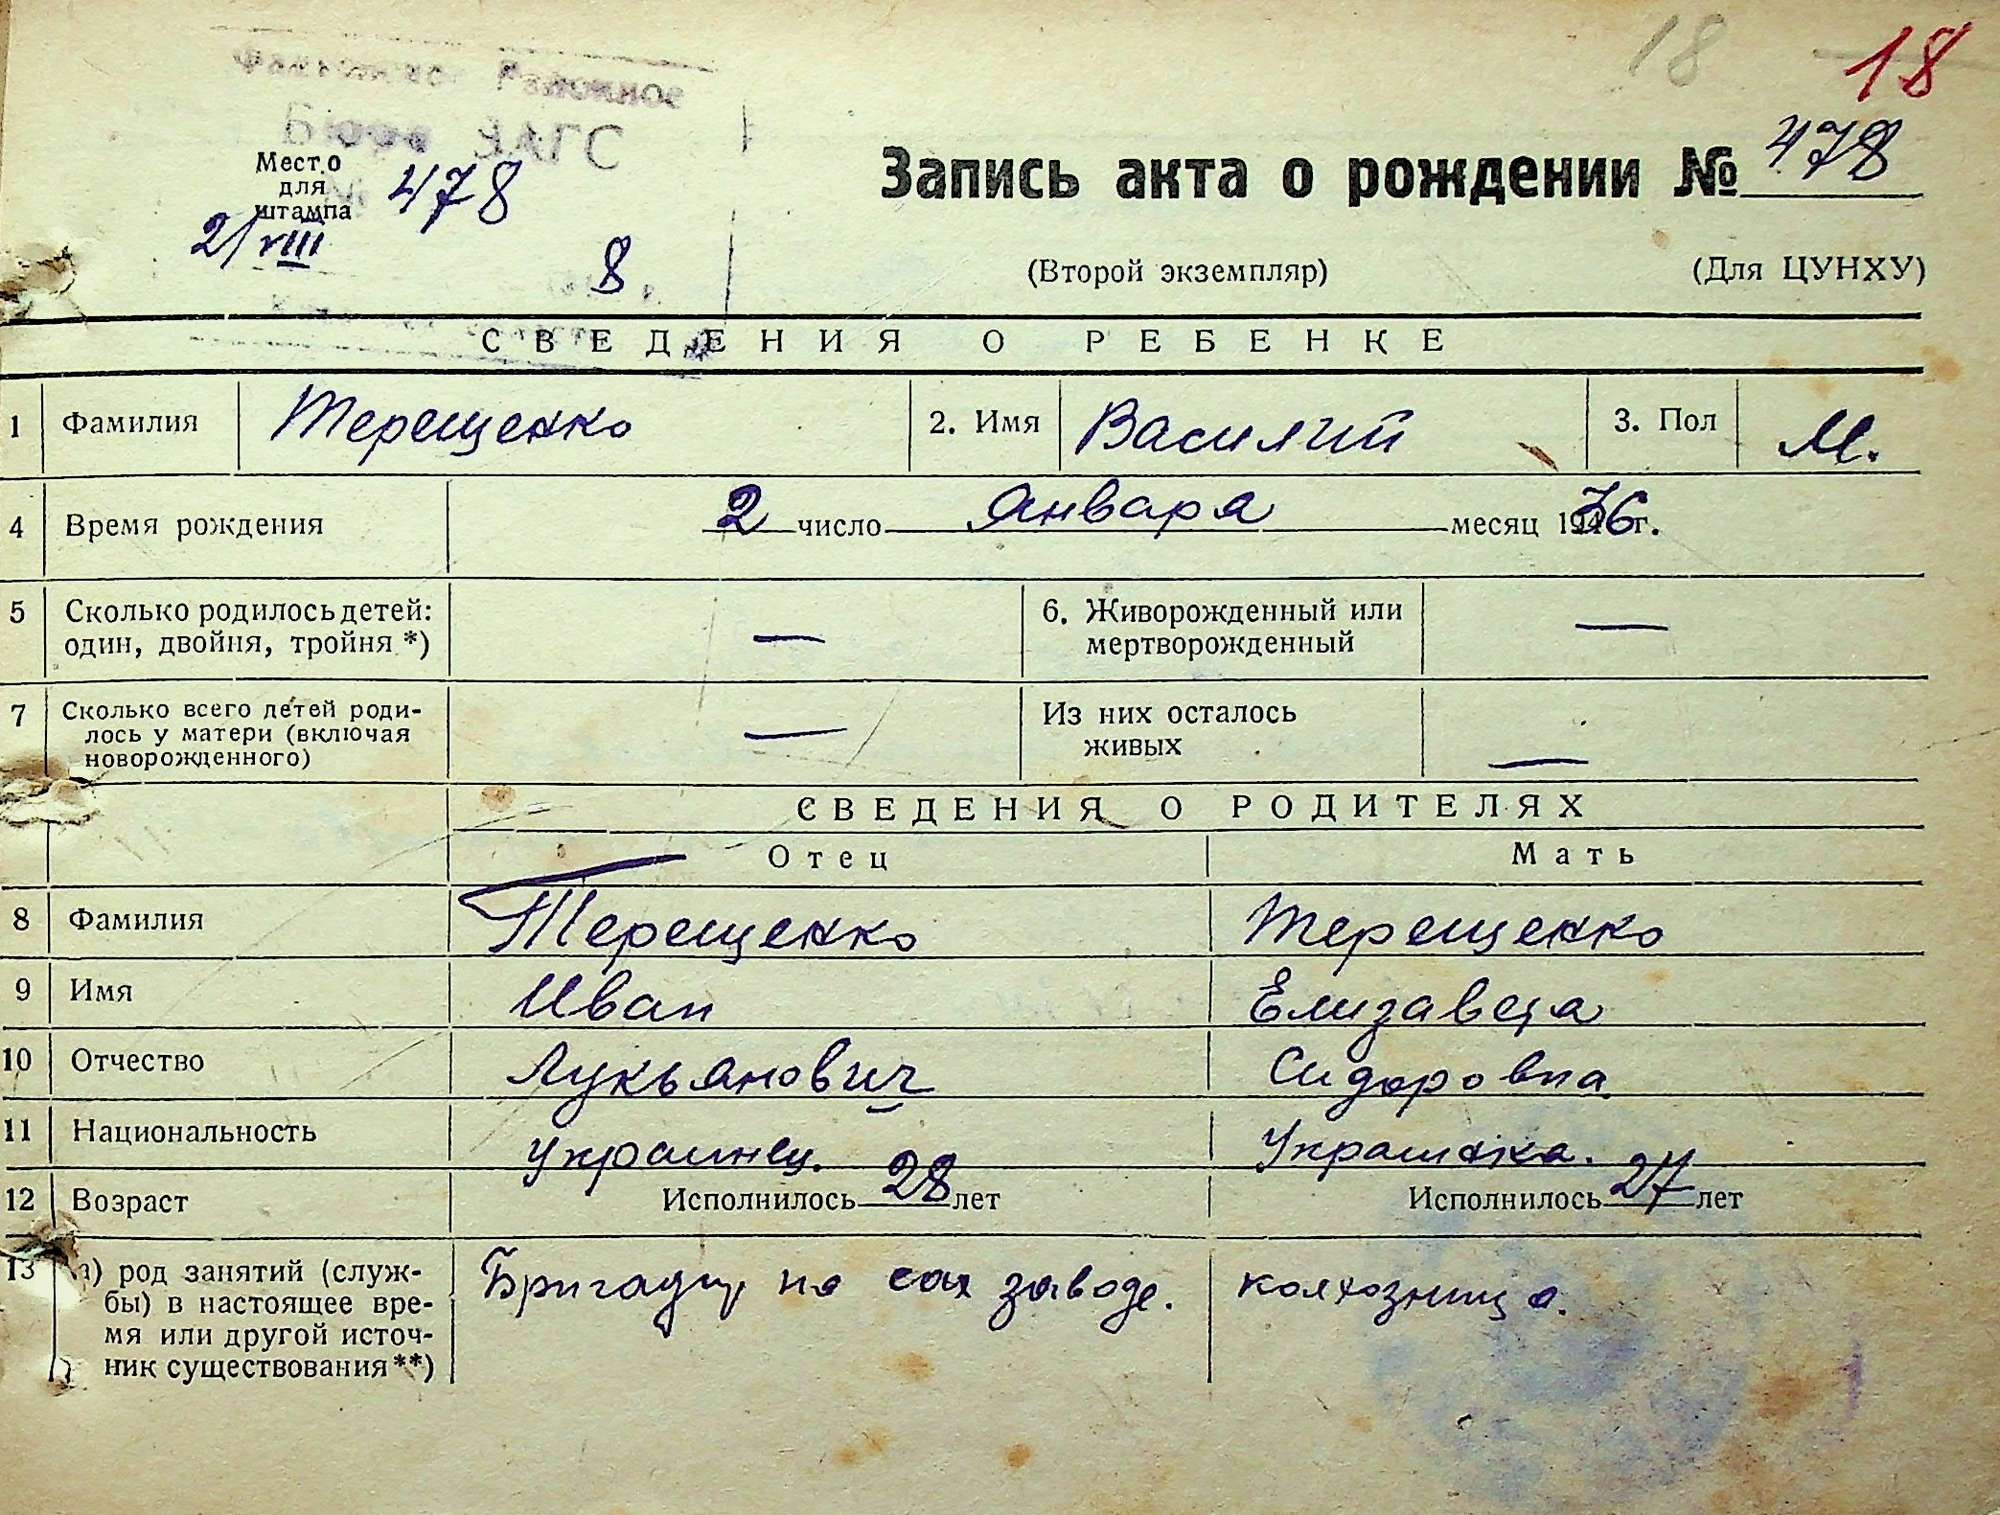 18 18
Районное
Бюро ЗАГС
Место
для
штампа
478
2/VIII
8
Запись акта о рождении № 478
(Второй экземпляр) (Для ЦУНХУ)
СВЕДЕНИЯ О РЕБЕНКЕ
1 Фамилия Терещенко 2. Имя Василий 3. Пол М.
4 Время рождения 2 число Января месяц 1936 г.
5 Сколько родилось детей: — 6. Живорожденный или —
один, двойня, тройня *) мертворожденный
7 Сколько всего детей роди- — Из них осталось —
лось у матери (включая живых
новорожденного)
СВЕДЕНИЯ О РОДИТЕЛЯХ
Отец Мать
8 Фамилия Терещенко Терещенко
9 Имя Иван Елизавета
10 Отчество Лукьянович Сидоровна
11 Национальность украинец. Украинка.
12 Возраст Исполнилось 28 лет Исполнилось 27 лет
13 а) род занятий (служ- Бригадир на сах заводе. колхозница.
бы) в настоящее вре-
мя или другой источ-
ник существования**)